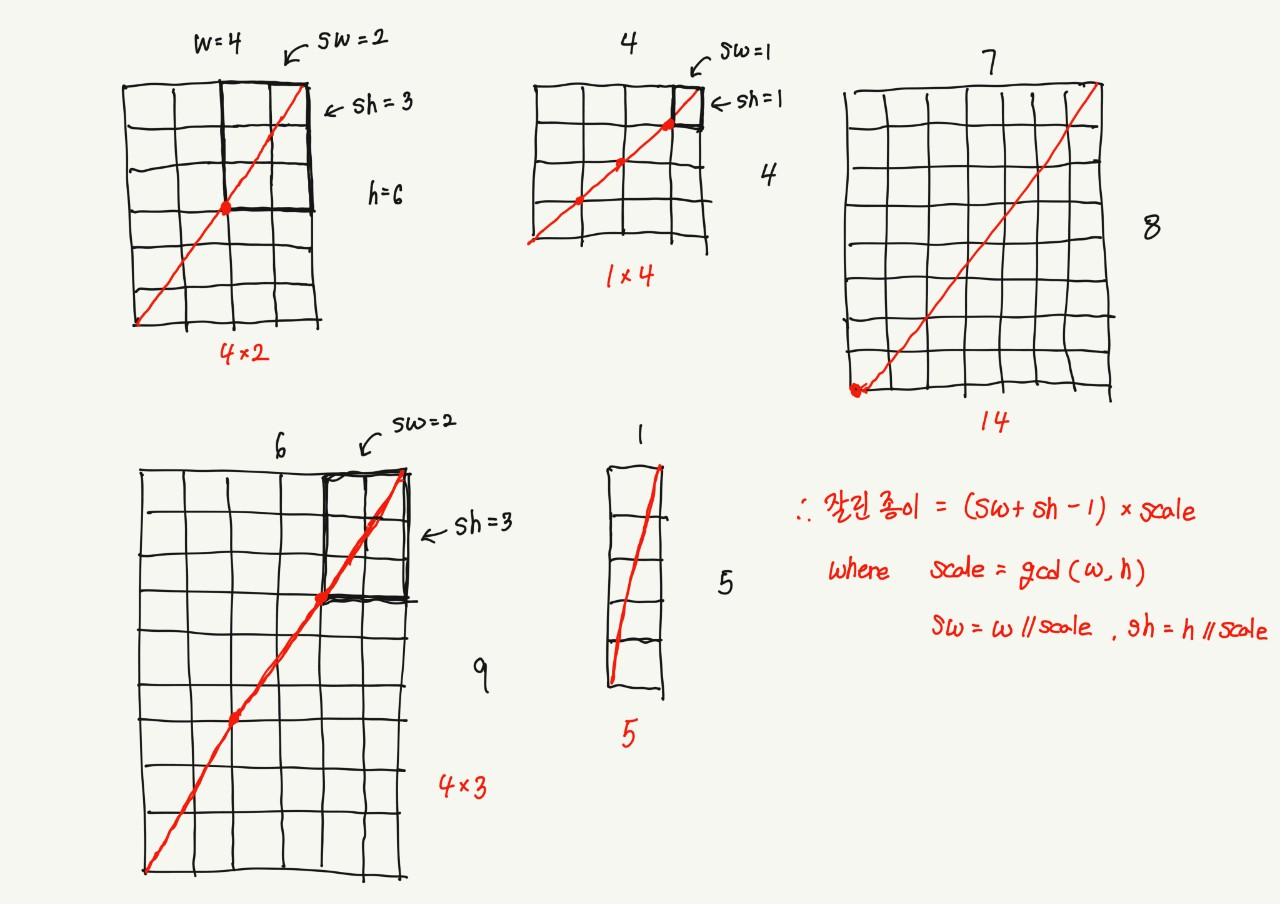 w=4
sw=2
sh=3
h=6
4×2
4
sw=1
sh=1
4
1×4
7
8
14
6
sw=2
sh=3
9
4×3
1
5
5
∴ 잘린 종이 = (sw+sh-1) × scale
where scale = gcd(w,h)
sw = w//scale , sh = h//scale